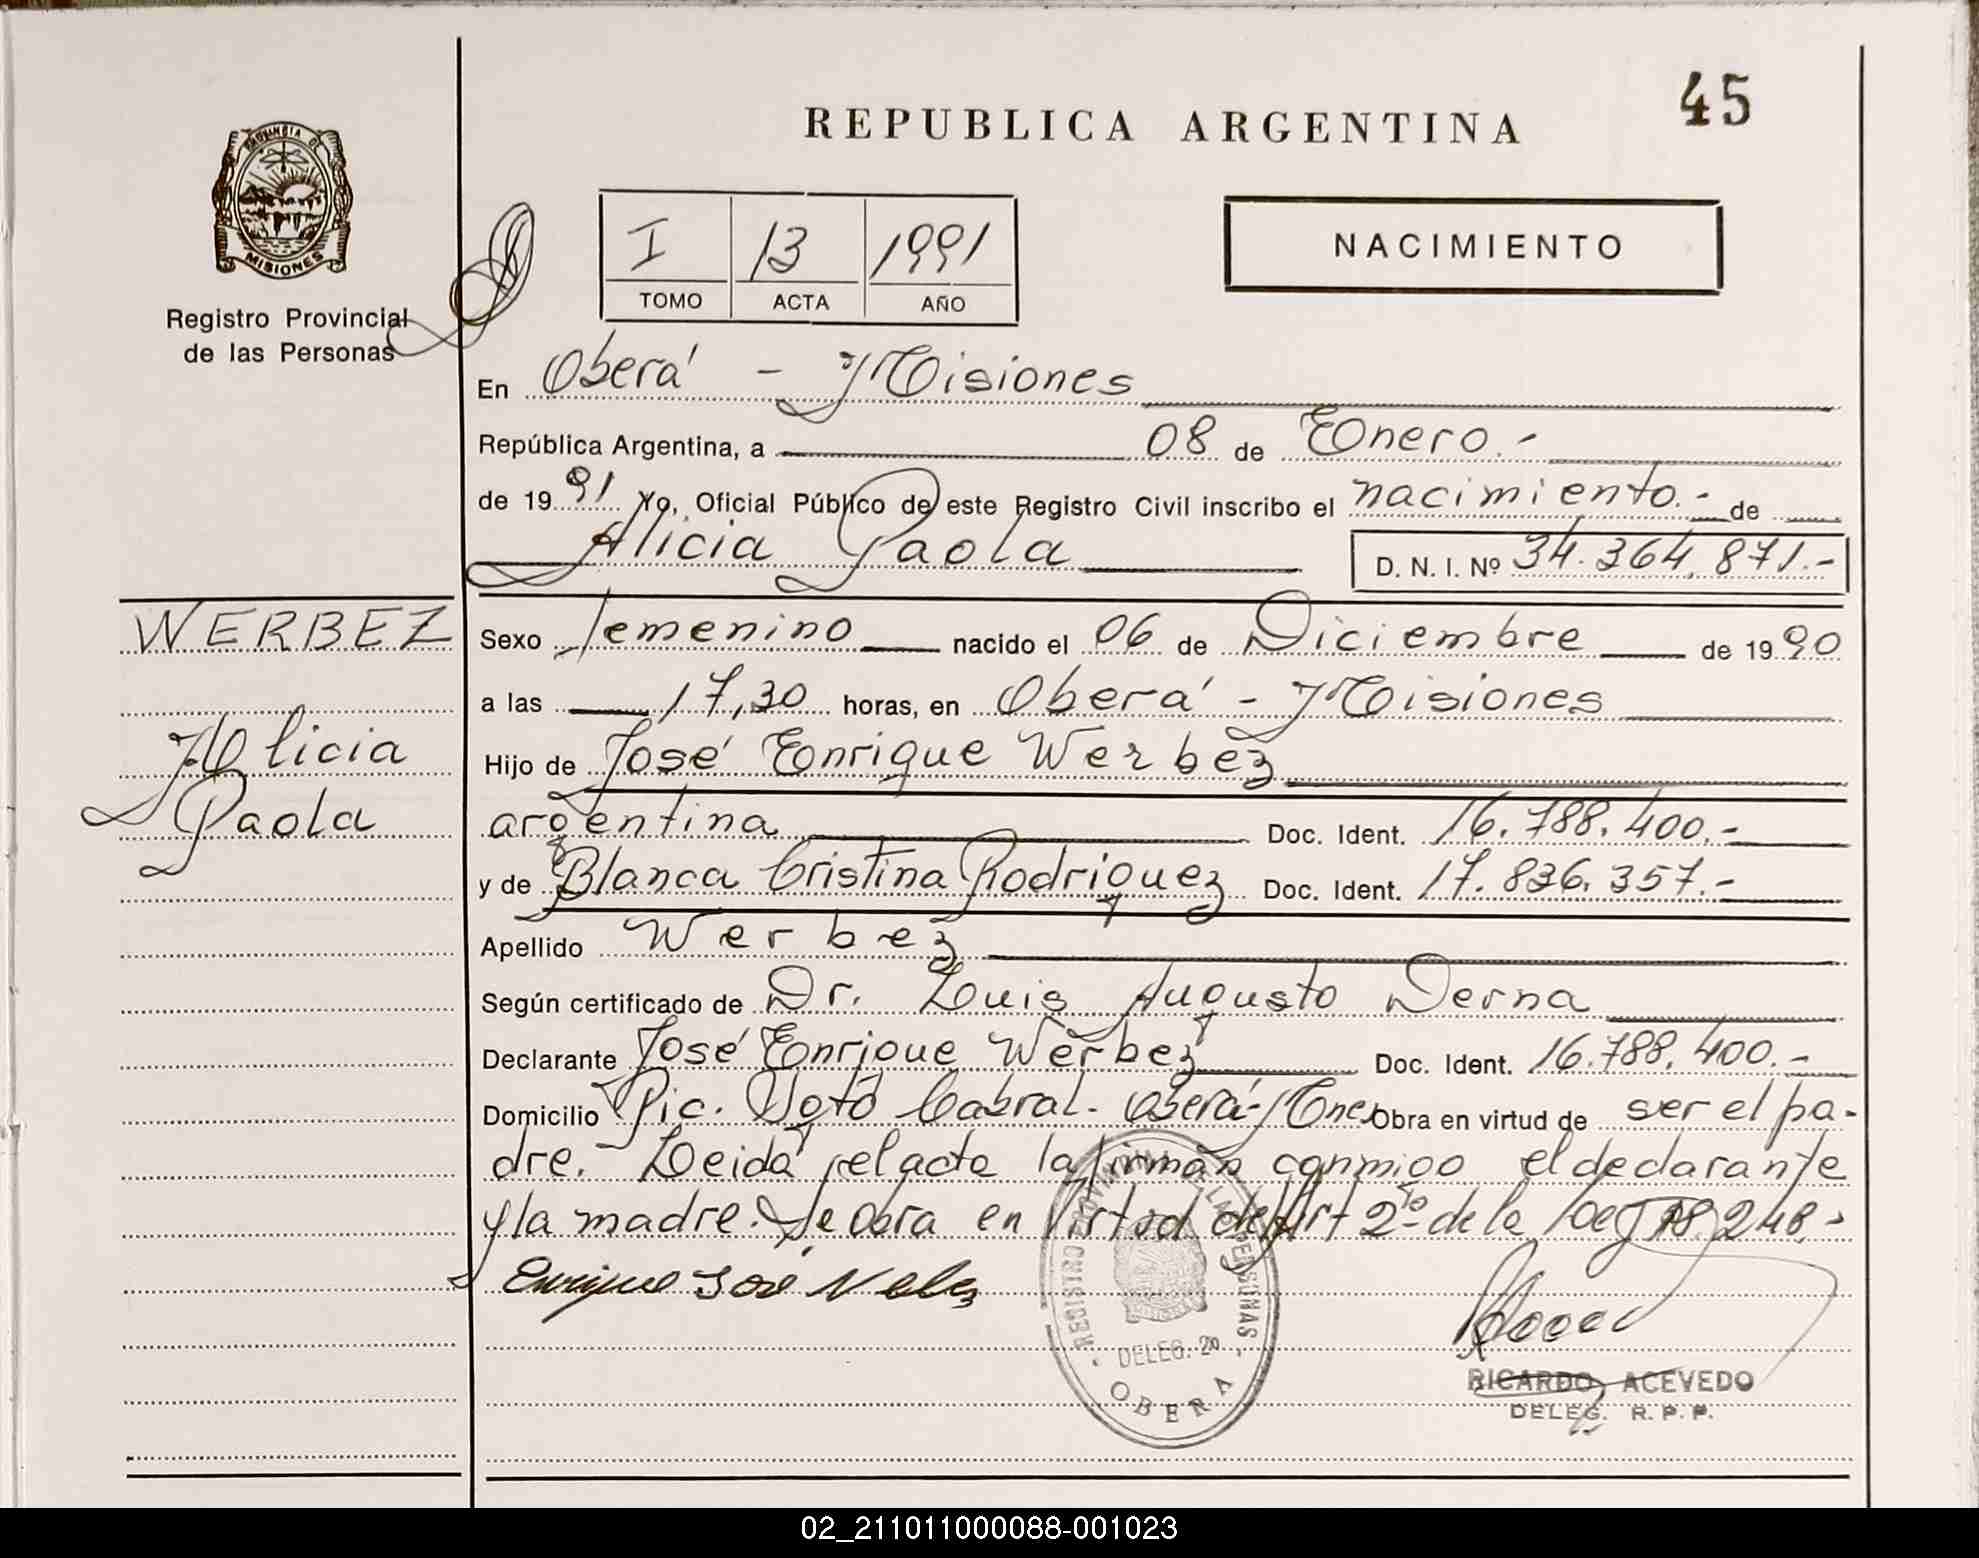 45
REPUBLICA ARGENTINA
PROVINCIA DE
MISIONES
Registro Provincial
de las Personas
I 13 1991
TOMO ACTA AÑO
NACIMIENTO
En Oberá - Misiones
República Argentina, a 08 de Enero.-
de 1991 Yo, Oficial Público de este Registro Civil inscribo el nacimiento.- de
Alicia Paola D. N. I. Nº 34.364.871.-
WERBEZ
Alicia
Paola
Sexo femenino nacido el 06 de Diciembre de 1990
a las 17,30 horas, en Oberá - Misiones
Hijo de José Enrique Werbez
argentina Doc. Ident. 16.788.400.-
y de Blanca Cristina Rodriguez Doc. Ident. 17.836.357.-
Apellido Werbez
Según certificado de Dr. Luis Augusto Derna
Declarante José Enrique Werbez Doc. Ident. 16.788.400.-
Domicilio Pic. Sgtº Cabral. Oberá-Mnes Obra en virtud de ser el pa-
dre. Leida el acta la firman conmigo el declarante
y la madre. Se obra en virtud del Art 2º de la Ley 18.248.-
Enrique José
REGISTRO PROVINCIAL DE LAS PERSONAS
DELEG. 20
OBERA
RICARDO ACEVEDO
DELEG. R. P. P.
02_211011000088-001023